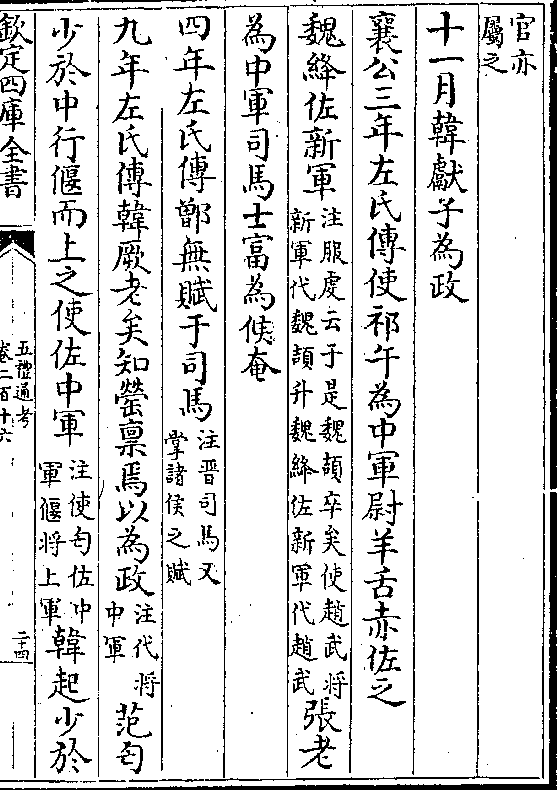 官亦
屬之
十一月韓獻子為政
襄公三年左氏傳使祁午為中軍尉羊舌赤佐之
魏絳佐新軍注服虔云于是魏頡卒矣使趙武將新軍代魏頡升魏絳佐新軍代趙武張老
為中軍司馬士富為候奄
四年左氏傳鄫無賦于司馬注晉司馬又掌諸侯之賦
九年左氏傳韓厥老矣知罃禀焉以為政注代將中軍范匄
少於中行偃而上之使佐中軍注使匄佐中軍偃將上軍韓起少於
欽定四庫全書
五禮通考
卷二百十六
二十四